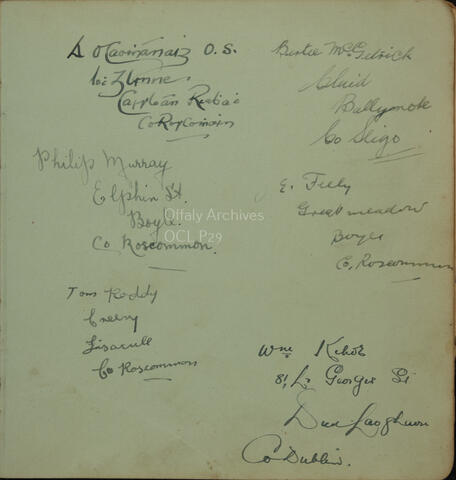 O.S.
Co Roscomáin
Philip Murray
Elphin St.
Boyle.
Co Roscommon.
Tom Reddy
Creevy
Lisacull
Co Roscommon
Bertie McGetrick
Cluid
Ballymote
Co Sligo
E. Feely
Greatmeadow
Boyle
Co, Roscommon
Wm Kehoe
81, Lr Georges St
Dun Laoghaire
Co Dublin.
Offaly Archives
OCL P29